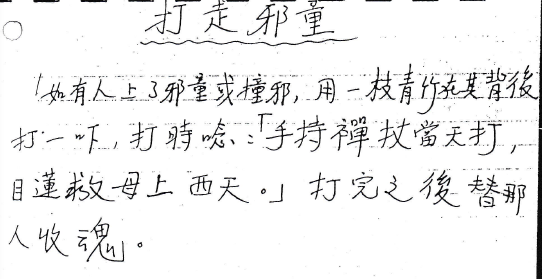 打走邪童
「如有人上了邪童或撞邪,用一枝青竹在其背後
打一吓,打時唸:「手持禪杖當天打,
目蓮救母上西天。」打完之後替那
人收魂」。